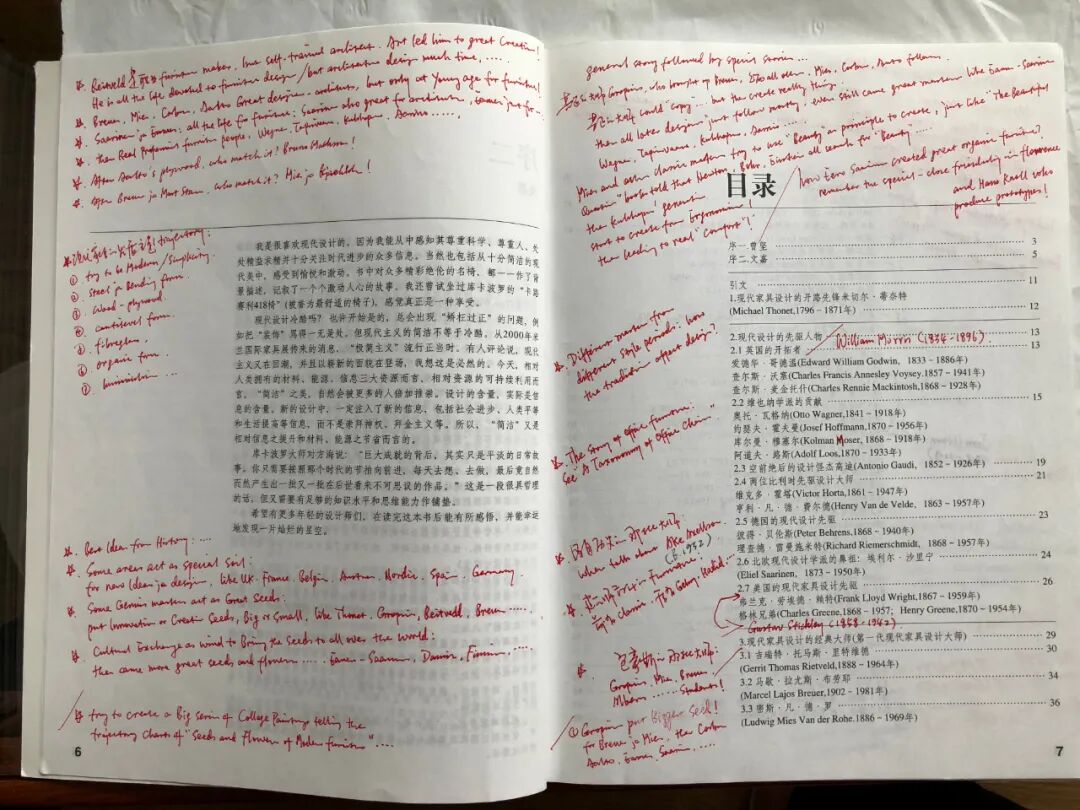 Rietveld furniture maker, but self-trained architect. Art led him to great Creation!
He is all the life devoted to furniture design / but architecture design much time, ......
Breuer, Mies, Corbu, Aalto Great designer-architects, but only at Young age for furniture!
Saarinen Eames: all the life for furniture: Saarinen also great for architecture, Eames just for ...
the Real Professional furniture people, Wegner, Tapiovaara, Kukkapuro, Aarnio ......
After Aalto's plywood, who match it? Bruno Mathsson!
After Breuer Mart Stam, who match it? Mies
我是很喜欢现代设计的，因为我能从中感知其尊重科学、尊重人、处
处精益求精并十分关注时代进步的众多信息。当然也包括从十分简洁的现
代美中，感受到愉悦和激动。书中对众多精彩绝伦的名椅，都一一作了背
景描述，记叙了一个个激动人心的故事。我还曾试坐过库卡波罗的“卡路
赛利418椅”(被誉为最舒适的椅子)，感觉真正是一种享受。
现代设计冷酷吗？也许开始的，总会出现“矫枉过正”的问题，例
如把“装饰”骂得一无是处。但现代主义的简洁不等于冷酷，从2000年米
兰国际家具展传来的消息，“极简主义”流行正当时。有人评论说，现代
主义又在回潮，并且以崭新的面貌在登场，我想这是必然的。今天，相对
人类拥有的材料、能源、信息三大资源而言，相对资源的可持续利用而
言，“简洁”之美，自然会被更多的人倍加推崇。设计的含量，实际是信
息的含量。新的设计中，一定注入了新的信息，包括社会进步、人类平等
和生活提高等信息，而不是崇拜神权、拜金主义等。所以，“简洁”又是
相对信息之提升和材料、能源之节省而言的。
库卡波罗大师对方海说：“巨大成就的背后，其实只是平淡的日常故
事。你只需要按照那个时代的节拍向前进，每天去想、去做，最后竟自然
而然产生出一批又一批在后世看来不可思议的作品。”这是一段很具哲理
的话，但又需要有足够的知识水平和思维能力作铺垫。
希望有更多年轻的设计师们，在读完这本书后能有所感悟，并能幸运
地发现一片灿烂的星空。
trajectory:
① try to be Modern/Simplicity
② Steel Bending form
③ Wood-plywood
④ cantilevel form
⑤ fibreglass,
⑥ organic form
⑦ ...
Best Idea from History: ...
Some area act as special soil:
for new Idea design, like UK. France. Belgi. Austria. Nordic. Spain. Germany.
Some Genius masters act as Great Seeds:
put Innovation or Creative Seeds, Big or Small, like Thonet. Gropius, Rietveld, Breuer ....
Cultural Exchange as wind to Bring the Seeds to all over the World:
then came more great seeds and flowers ...... Eames-Saarinen, Danish, Finnish, ....
try to create a Big Series of College Paintings telling the
trajectory Charts of "Seeds and Flowers of Modern furniture" ....
6
general story followed by special stories ...
Gropius, who bought up Breuer, Mies, Corbu, Aalto follow
could copy ... but the create really thing
them all later design just follow mostly, even still came great masters like Eames-Saarinen
Wegner, Tapiovaara, Kukkapuro, Aarnio ......
Mies and other classic masters try to use "Beauty" as principle to create, just like "The Beautiful
Question" books told that Newton, Bohr, Einstein all search for "Beauty" ......
the Kukkapuro' generation
start to create from Ergonomics!
then leading to real "Comfort"!
how Eero Saarinen created great organic furniture?
remember the special-close friendship in florence
and Hans Knoll who
produce prototypes!
目录
序一.曾坚 3
序二.文嘉 5
引文 11
1.现代家具设计的开路先锋米切尔·蒂奈特
(Michael Thonet,1796－1871年) 12
2.现代设计的先驱人物 13
William Morris (1834-1896)
2.1 英国的开拓者 13
爱德华·哥德温(Edward William Godwin, 1833－1886年)
查尔斯·沃赛(Charles Francis Annesley Voysey.1857－1941年)
查尔斯·麦金托什(Charles Rennie Mackintosh,1868－1928年)
2.2 维也纳学派的贡献 15
奥托·瓦格纳(Otto Wagner,1841－1918年)
约瑟夫·霍夫曼(Josef Hoffmann,1870－1956年)
库尔曼·穆塞尔(Kolman Moser, 1868－1918年)
阿道夫·路斯(Adolf Loos,1870－1933年)
2.3 空前绝后的设计怪杰高迪(Antonio Gaudi, 1852－1926年) 19
2.4 两位比利时先驱设计大师 21
维克多·霍塔(Victor Horta,1861－1947年)
亨利·凡·德·费尔德(Henry Van de Velde, 1863－1957年)
2.5 德国的现代设计先驱 23
彼得·贝伦斯(Peter Behrens,1868－1940年)
理查德·雷曼施米特(Richard Riemerschmidt, 1868－1957年)
2.6 北欧现代设计学派的鼻祖：埃利尔·沙里宁 24
(Eliel Saarinen, 1873－1950年)
2.7 美国的现代家具设计先驱 26
弗兰克·劳埃德·赖特(Frank Lloyd Wright,1867－1959年)
格林兄弟(Charles Greene,1868－1957; Henry Greene,1870－1954年)
Gustav Stickley (1858-1942)
3.现代家具设计的经典大师(第一代现代家具设计大师) 29
3.1 吉瑞特·托马斯·里特维德 30
(Gerrit Thomas Rietveld,1888－1964年)
3.2 马歇·拉尤斯·布劳耶 34
(Marcel Lajos Breuer,1902－1981年)
3.3 密斯·凡·德·罗 36
(Ludwig Mies Van der Rohe.1886－1969年)
Different masters from
different style periods: how
the tradition affect design?
The Story of Office furniture.
See "A Taxonomy of Office Chair"
When talks about
Gropius, Mies, Breuer,
Students!
① Gropius put Bigger Seed!
for Breuer Mies, then Corbu
Aalto, Eames, Saarinen, ....
7